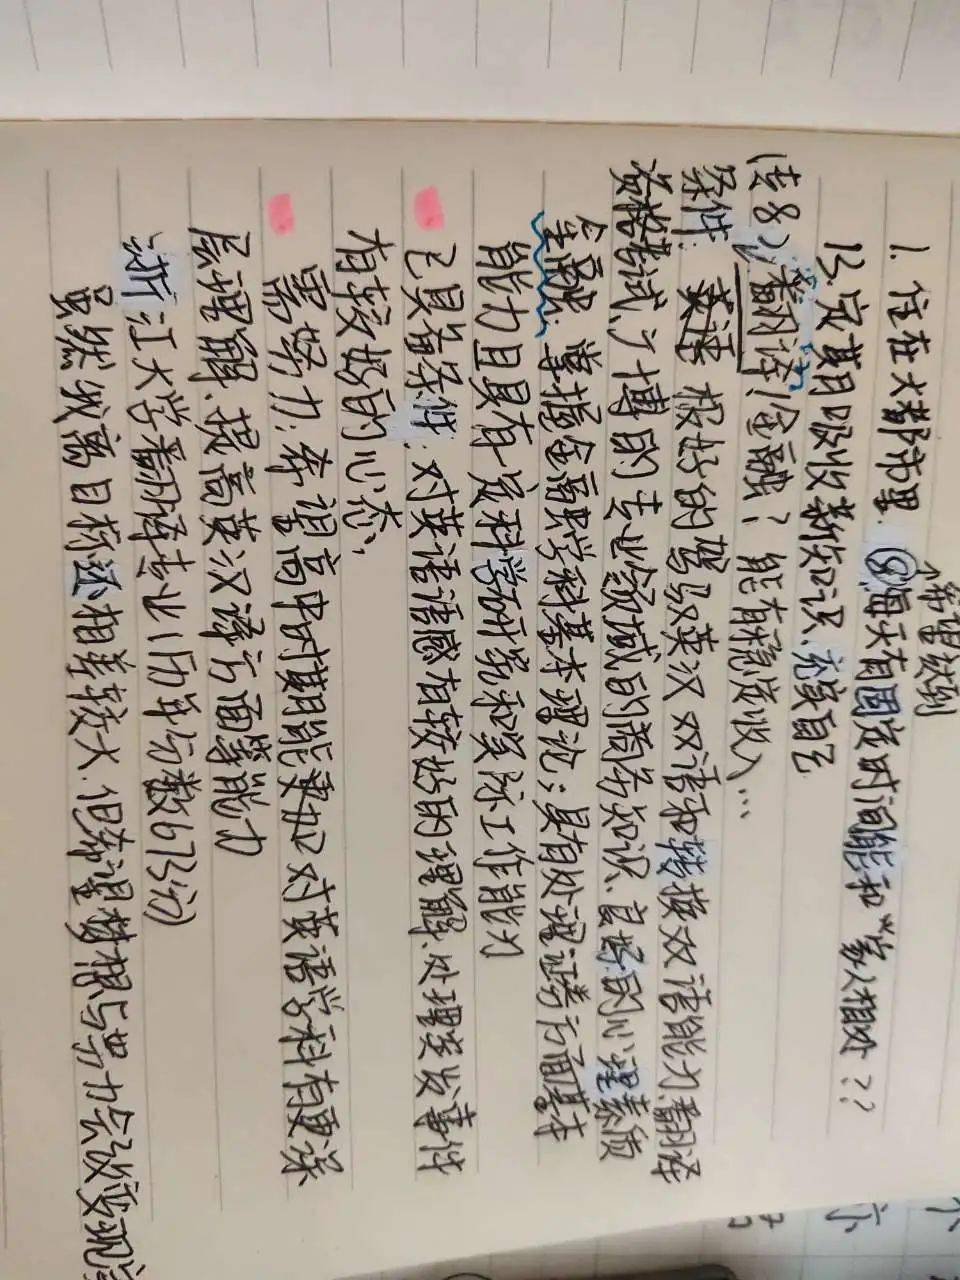 希望达到
1. 住在大都市里. ⑧每天有固定时间能和家人相处??
13. 定期吸收新知识, 充实自己
(去8) ②翻译/金融? 能有稳定收入…
条件: 英语 极好的驾驭英汉双语和转换双语能力.翻译
资格考试.广博的专业领域的商务知识、良好的心理素质
金融. 掌握金融学科基本理论; 具有处理证券方面基本
能力且具有该科学研究和实际工作能力
已具备条件: 对英语语感有较好的理解.处理突发事件
有较好的心态.
需努力: 希望高中时期能更加对英语学科有更深
层理解、提高英汉译方面等能力
浙江大学翻译专业(历年分数673分)
虽然我离目标还相差较大. 但希望梦想与努力会致变现